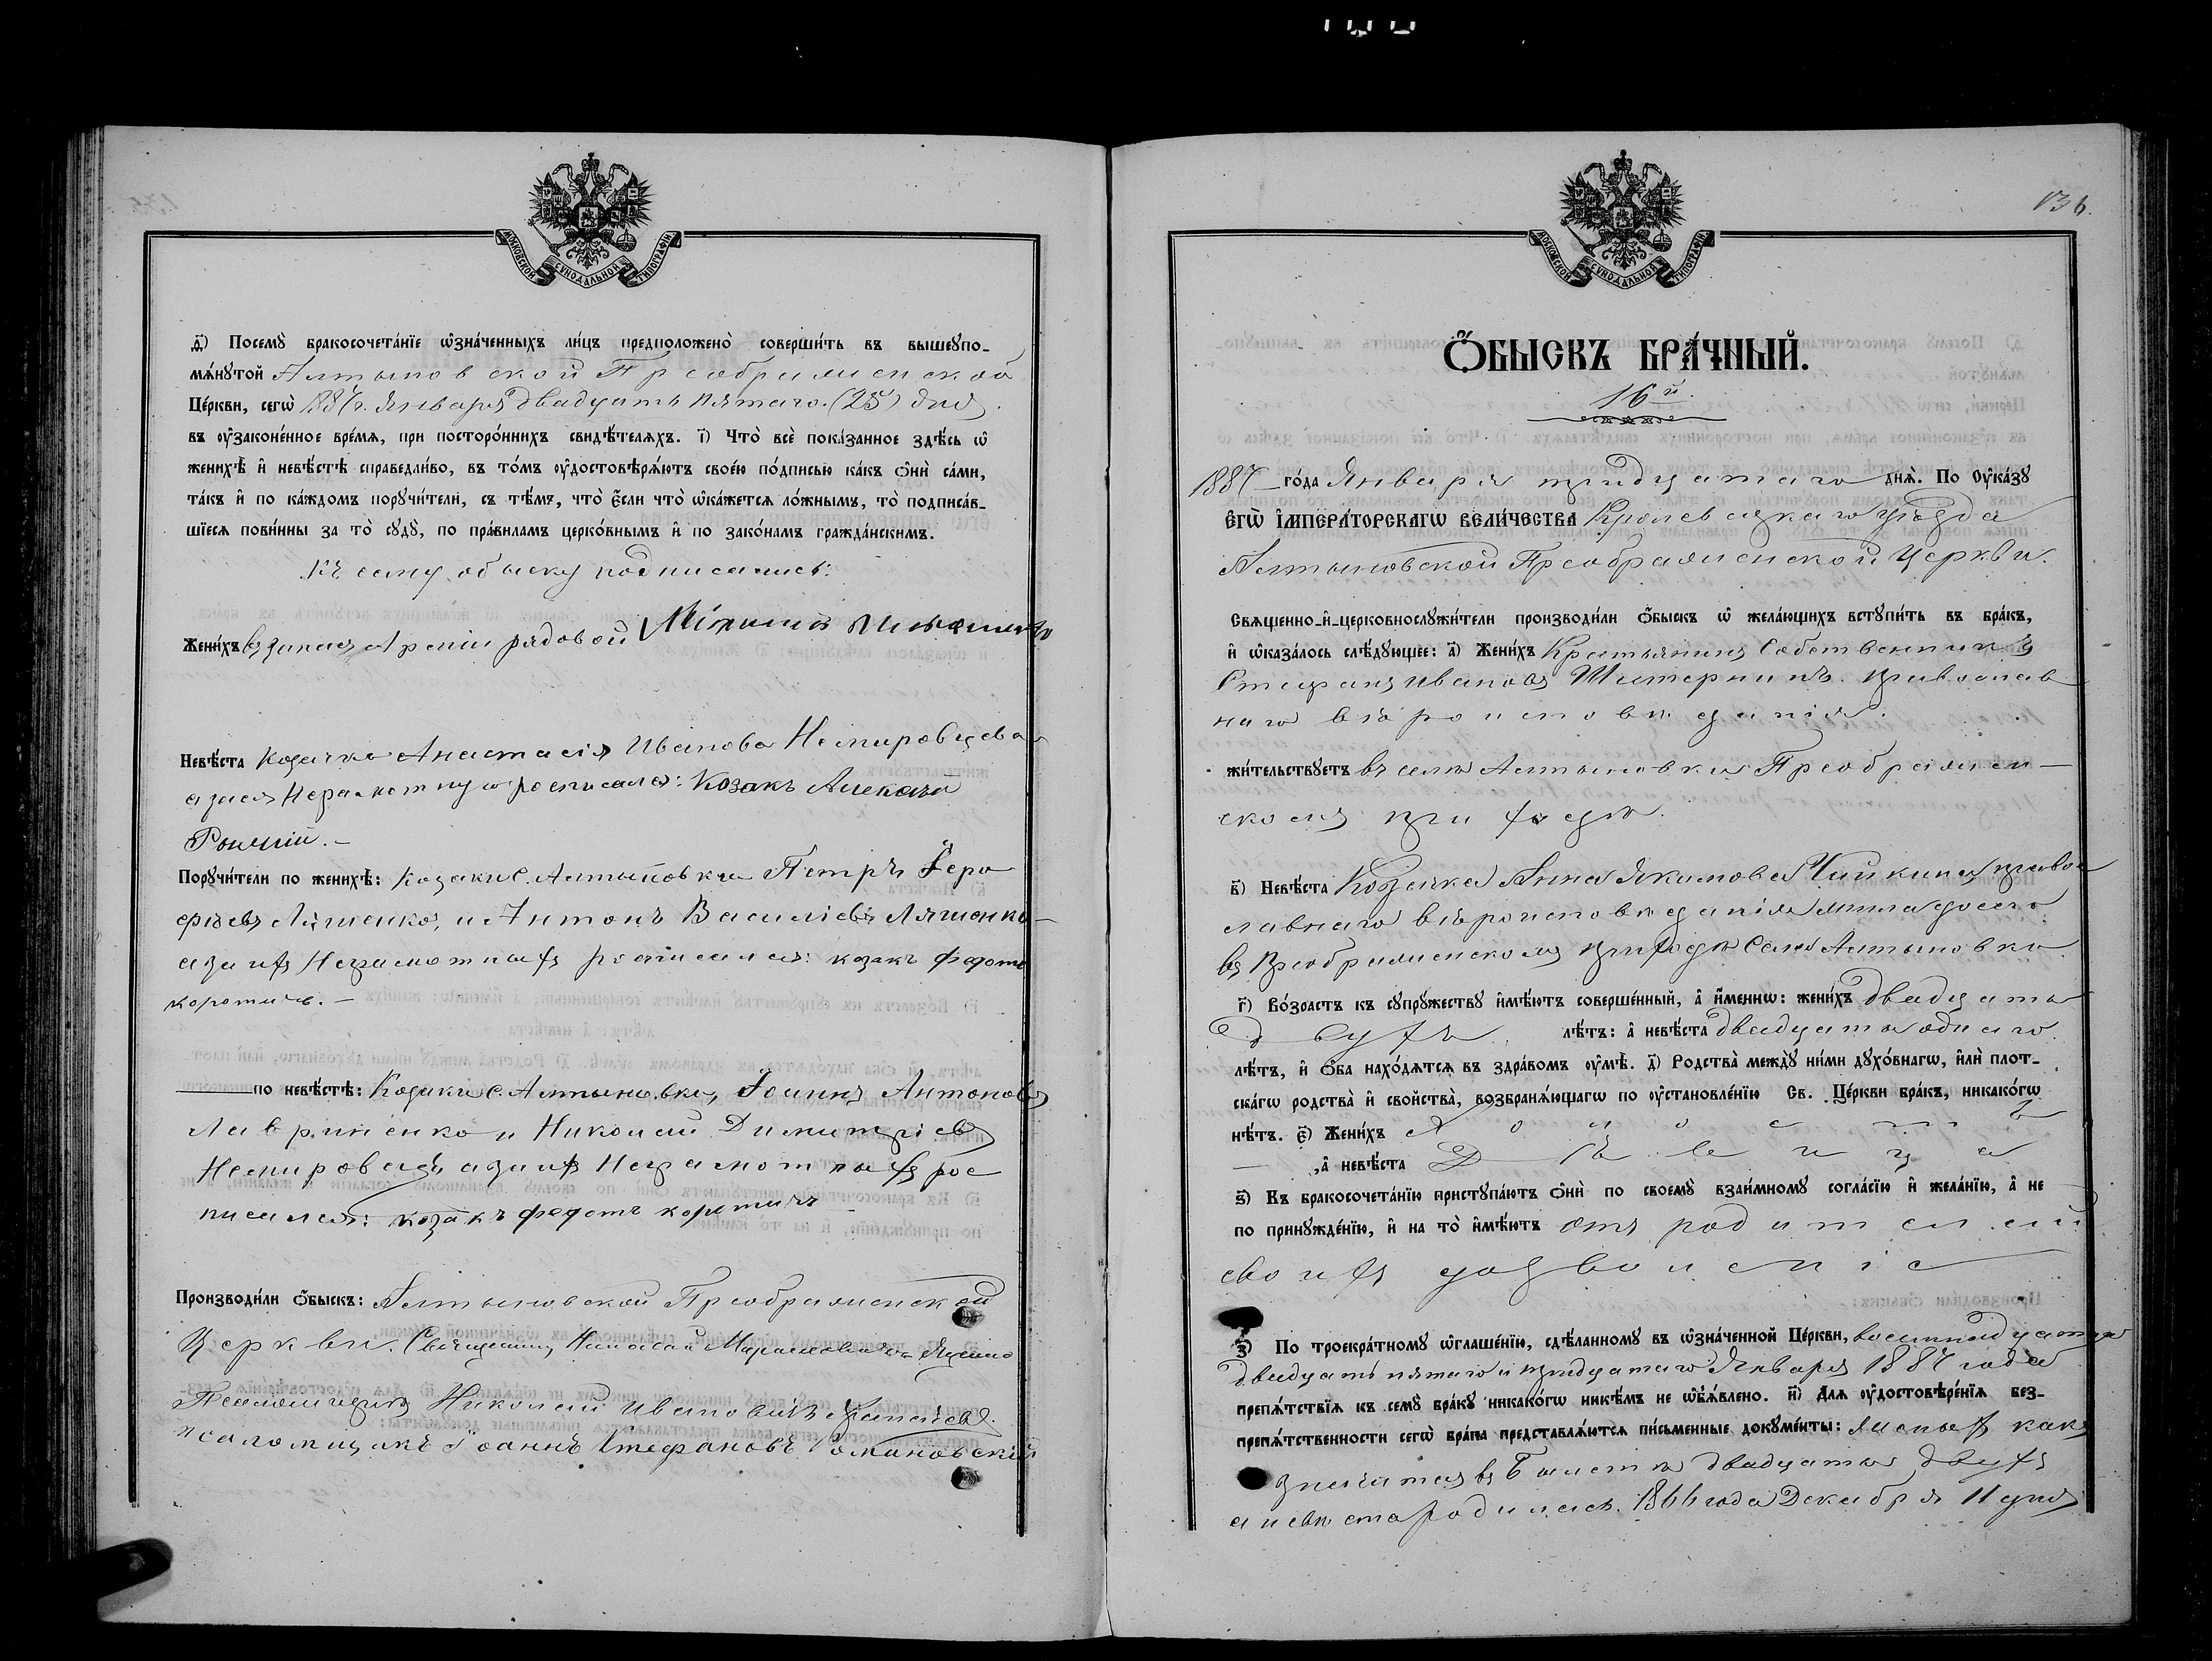 МОСКОВСКОЙ СѴНОДАЛЬНОЙ ТИПОГРАФІИ
д҃і) Посемꙋ̀ бракосочета́нїе ѡ҆зна́ченныхъ ли́цъ предположено̀ соверши́ть въ вышеꙋпо-
мѧ́нꙋтой Алтыновской Преображенской
Це́ркви, сегѡ̀ 1887 г. Января двадцать пятаго (25) дня
въ ᲂу҆законе́нное вре́мѧ, при посторо́ннихъ свидѣ́телѧхъ. і҃) Что̀ всѐ пока́занное здѣ́сь ѡ҆
женихѣ̀ и҆ невѣ́стѣ справедли́во, въ то́мъ ᲂу҆достовѣрѧ́ютъ свое́ю по́дписью ка́къ ѻ҆нѝ са́ми,
та́къ и҆ по ка́ждомъ порꙋчи́тели, съ тѣ́мъ, что̀ є҆́сли что̀ ѡ҆ка́жетсѧ ло́жнымъ, то̀ подписа́в-
шїесѧ пови́нны за то̀ сꙋдꙋ̀, по пра́виламъ церко́внымъ и҆ по зако́намъ гражда́нскимъ.
Къ сему обыску подписались:
Жени́хъ въ запасъ Арміи рядовой
Невѣ́ста Козачка Анастасія Иванова Немировцева
а за нея Неграмотную росписался: Козакъ Алексѣй
Порꙋчи́тели по женихѣ̀: Козаки С. Алтыновки Петръ Іеро
фѣевъ Ляшенко, и Антонъ Василіевъ Ляшенко
а за ихъ Неграмотныхъ росписался: козакъ Федотъ
коротичъ. –
по невѣ́стѣ: Козаки С. Алтыновки, Іоаннъ Антоновъ
Лавриненко и Николай Димитріевъ
Немировецъ а за ихъ Неграмотныхъ рос
писался: козакъ федотъ коротичъ
Производи́ли ѻ҆́быскъ: Алтыновской Преображенской
Церкви. Священникъ
Псаломщикъ Николай Ивановичъ
псаломщикъ Іоаннъ Стефановъ Романовскій
136.
МОСКОВСКОЙ СѴНОДАЛЬНОЙ ТИПОГРАФІИ
Ѻ҆́БЫСКЪ БРА́ЧНЫЙ.
16й.
1887 го́да Января тридцатаго днѧ̀. По Оу҆ка́зꙋ
Є҆гѡ̀ І҆мпера́торскагѡ Вели́чества Кролевецкаго уѣзда
Алтыновской Преображенской Церкви.
Свѧщенно-и҆-церковнослꙋжи́тели производи́ли ѻ҆́быскъ ѡ҆ жела́ющихъ встꙋпи́ть въ бра́къ,
и҆ ѡ҆каза́лось слѣ́дꙋющее: а҃) Жени́хъ Крестьянинъ Собственникъ
Стефанъ Ивановъ православ
наго вѣроисповѣданія.
жи́тельствꙋетъ въ селѣ Алтыновки Преображен-
скомъ приходѣ.
в҃) Невѣ́ста Козачка Анна Якимова Чайкина, право
славнаго вѣроисповѣданія
въ Преображенскомъ приходѣ Села Алтыновки
г҃) Во́зрастъ къ сꙋпрꙋ́жествꙋ и҆мѣ́ютъ соверше́нный, а҆ и҆́менно: жени́хъ двадцати
двухъ лѣ́тъ: а҆ невѣ́ста двадцати одного
лѣ́тъ, и҆ ѻ҆́ба нахо́дѧтсѧ въ здра́вомъ ᲂу҆мѣ̀. д҃) Родства̀ междꙋ̀ ни́ми дꙋхо́внагѡ, и҆лѝ плот-
ска́гѡ родства̀ и҆ сво́йства, возбранѧ́ющагѡ по ᲂу҆становле́нїю Св. Це́ркви бра́къ, никако́гѡ
нѣ́тъ. є҃) Жени́хъ Холостъ
, а҆ невѣ́ста Дѣвица
ѕ҃) Къ бракосочета́нїю пристꙋпа́ютъ ѻ҆нѝ по своемꙋ̀ взаи́мномꙋ согла́сїю и҆ жела́нїю, а҆ не
по принꙋжде́нїю, и҆ на то̀ и҆мѣ́ютъ отъ родителей
своихъ дозволеніе
з҃) По троекра́тномꙋ ѡ҆глаше́нїю, сдѣ́ланномꙋ въ ѡ҆зна́ченной Це́ркви, восемнадцатаго
двадцать пятаго и тридцатаго Января 1887 года
препѧ́тствїѧ къ семꙋ̀ бра́кꙋ никако́гѡ никѣ́мъ не ѡ҆б̾ѧ́влено. и҃) Длѧ ᲂу҆достовѣре́нїѧ без-
препѧ́тственности сегѡ̀ бра́ка представлѧ́ютсѧ пи́сьменные докꙋме́нты: женихъ какъ
значится въ Билетѣ двадцати двухъ
а невѣста родилась 1866 года Декабря 11 дня